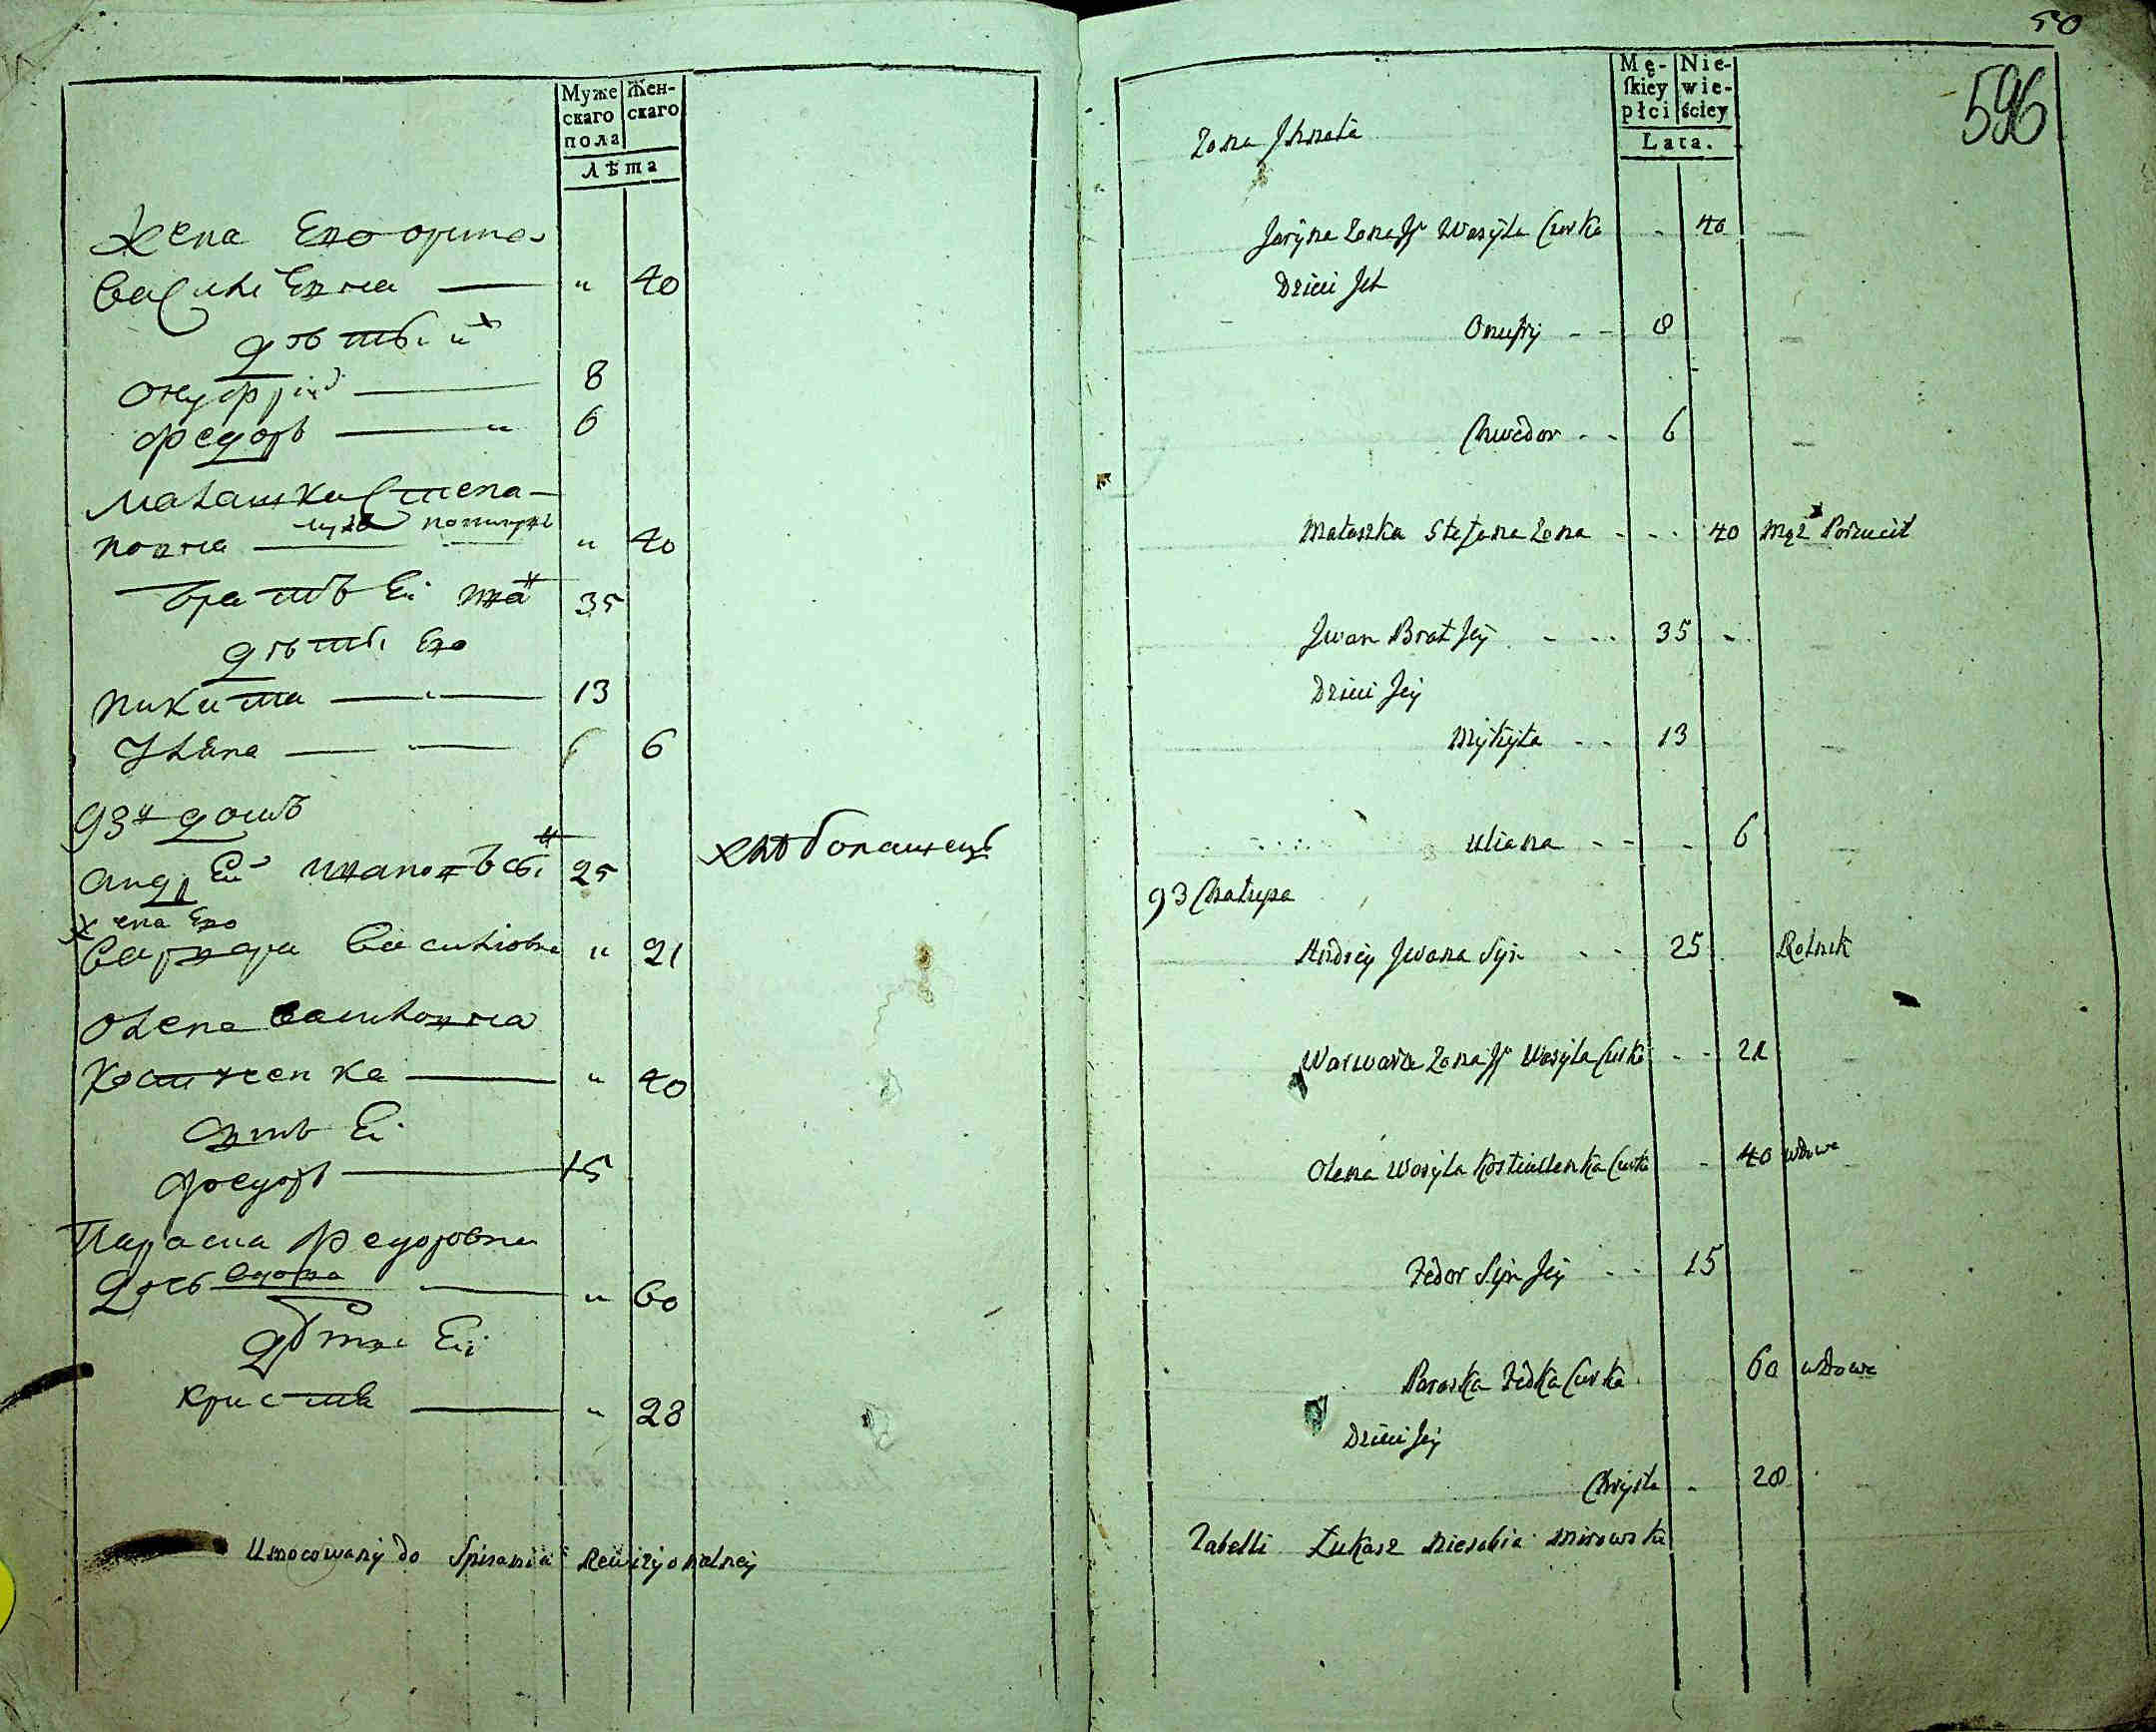 Муже
скаго
пола
Жен-
скаго
лѣта
жена Его орина
василиевна — " 40
дѣти ихъ
онуфрій — 8
федоръ — " 6
малашка Степа-
новна — мужъ " 40
братъ Ея иванъ 35
дѣти Его
никита — 13
Уляна — 6
93й домъ
андрей ивановъ 25 хлѣбопашецъ
жена Его
варвара василиовна " 21
олена василовна
— " 40
сынъ Ея
федоръ — 15
Параска федоровна
дочь вдова — " 60
дѣти Ея
христя — " 28
Umocowany do Spisania Rewizyonalney
50
596
Mę-
skiey
płci
Nie-
wie-
ściey
Lata.
Zona Jhnata
Jaryna Zona Je Wasyla Curka - 40
Dzieci Ich
Onufry - - 8
Chwedor - - 6
Małaszka Stefana Zona - - - 40 Mąż Porzucił
Jwan Brat Jey - - - 35 -
Dzieci Jey
Mykyta - - 13
Uliana - - - 6
93 Chałupa
Andrey Jwana Syn - - 25 Rolnik
Warwara Zona Je Wasyla Curka - - 21
Olena Wasyla Curka - 40 wdowa
Fedor Syn Jey - - 15
Paraska Fedka Curka 60 wdowa
Dzieci Jey
Chrysta - 28
Tabelli Łukasz